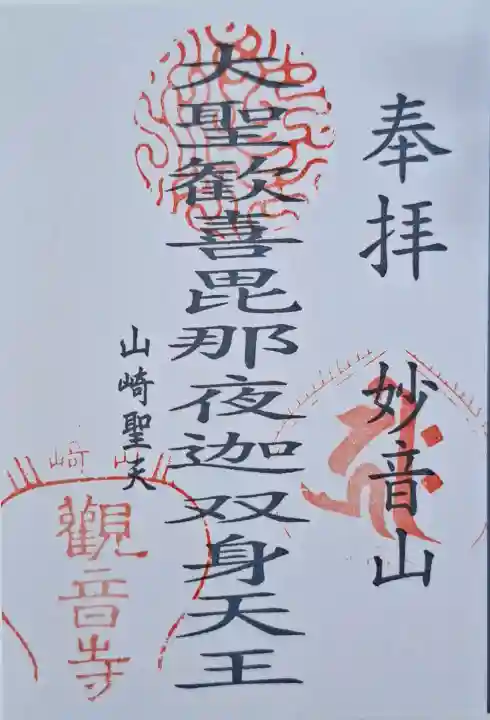 奉拝
妙音山
大聖歓喜毘那夜迦双身天王
山崎聖天
山崎
觀音寺